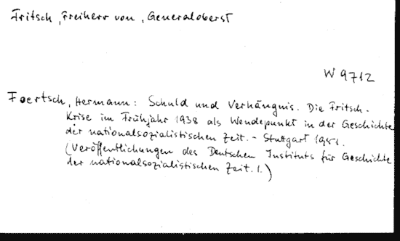 Fritsch, Freiherr von, Generaloberst
W 9712
Foertsch, Hermann: Schuld und Verhängnis. Die Fritsch-
Krise im Frühjahr 1938 als Wendepunkt in der Geschichte
der nationalsozialistischen Zeit. - Stuttgart 1951.
(Veröffentlichungen des Deutschen Instituts für Geschichte
der nationalsozialistischen Zeit. 1.)